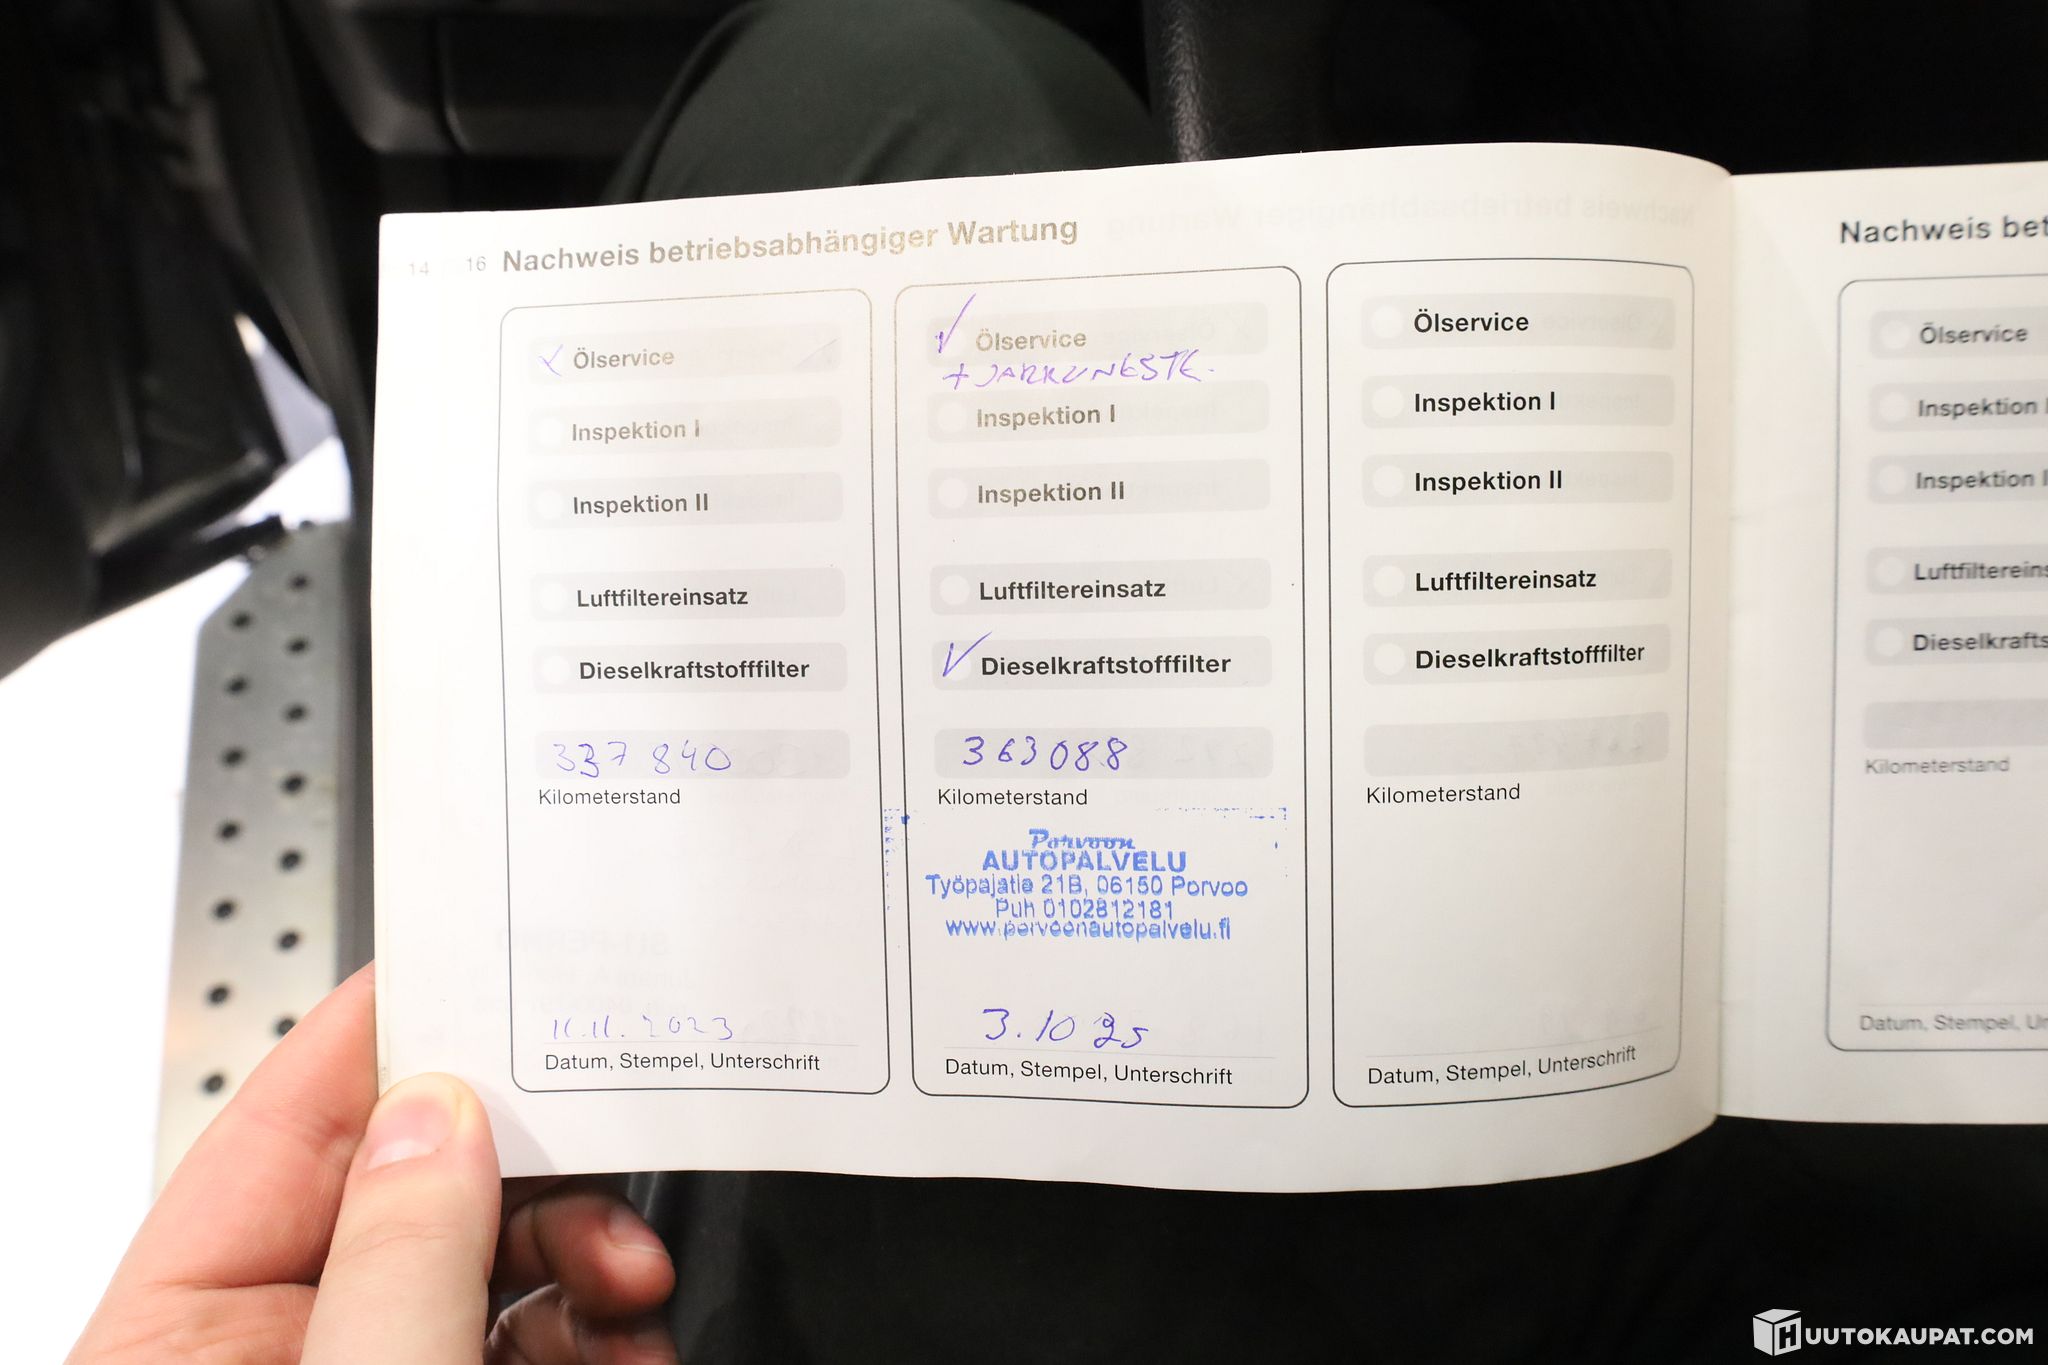 14 16 Nachweis betriebsabhängiger Wartung
Ölservice
Inspektion I
Inspektion II
Luftfiltereinsatz
Dieselkraftstofffilter
337 840
Kilometerstand
11.11.2023
Datum, Stempel, Unterschrift
Ölservice
+ JARRUNESTE.
Inspektion I
Inspektion II
Luftfiltereinsatz
Dieselkraftstofffilter
363088
Kilometerstand
Porvoon
AUTOPALVELU
Työpajatie 21B, 06150 Porvoo
Puh 0102812181
www.porvoonautopalvelu.fi
3.10 25
Datum, Stempel, Unterschrift
Ölservice
Inspektion I
Inspektion II
Luftfiltereinsatz
Dieselkraftstofffilter
Kilometerstand
Datum, Stempel, Unterschrift
Nachweis bet
Ölservice
Inspektion I
Inspektion I
Luftfiltereins
Dieselkrafts
Kilometerstand
Datum, Stempel, Un
HUUTOKAUPAT.COM